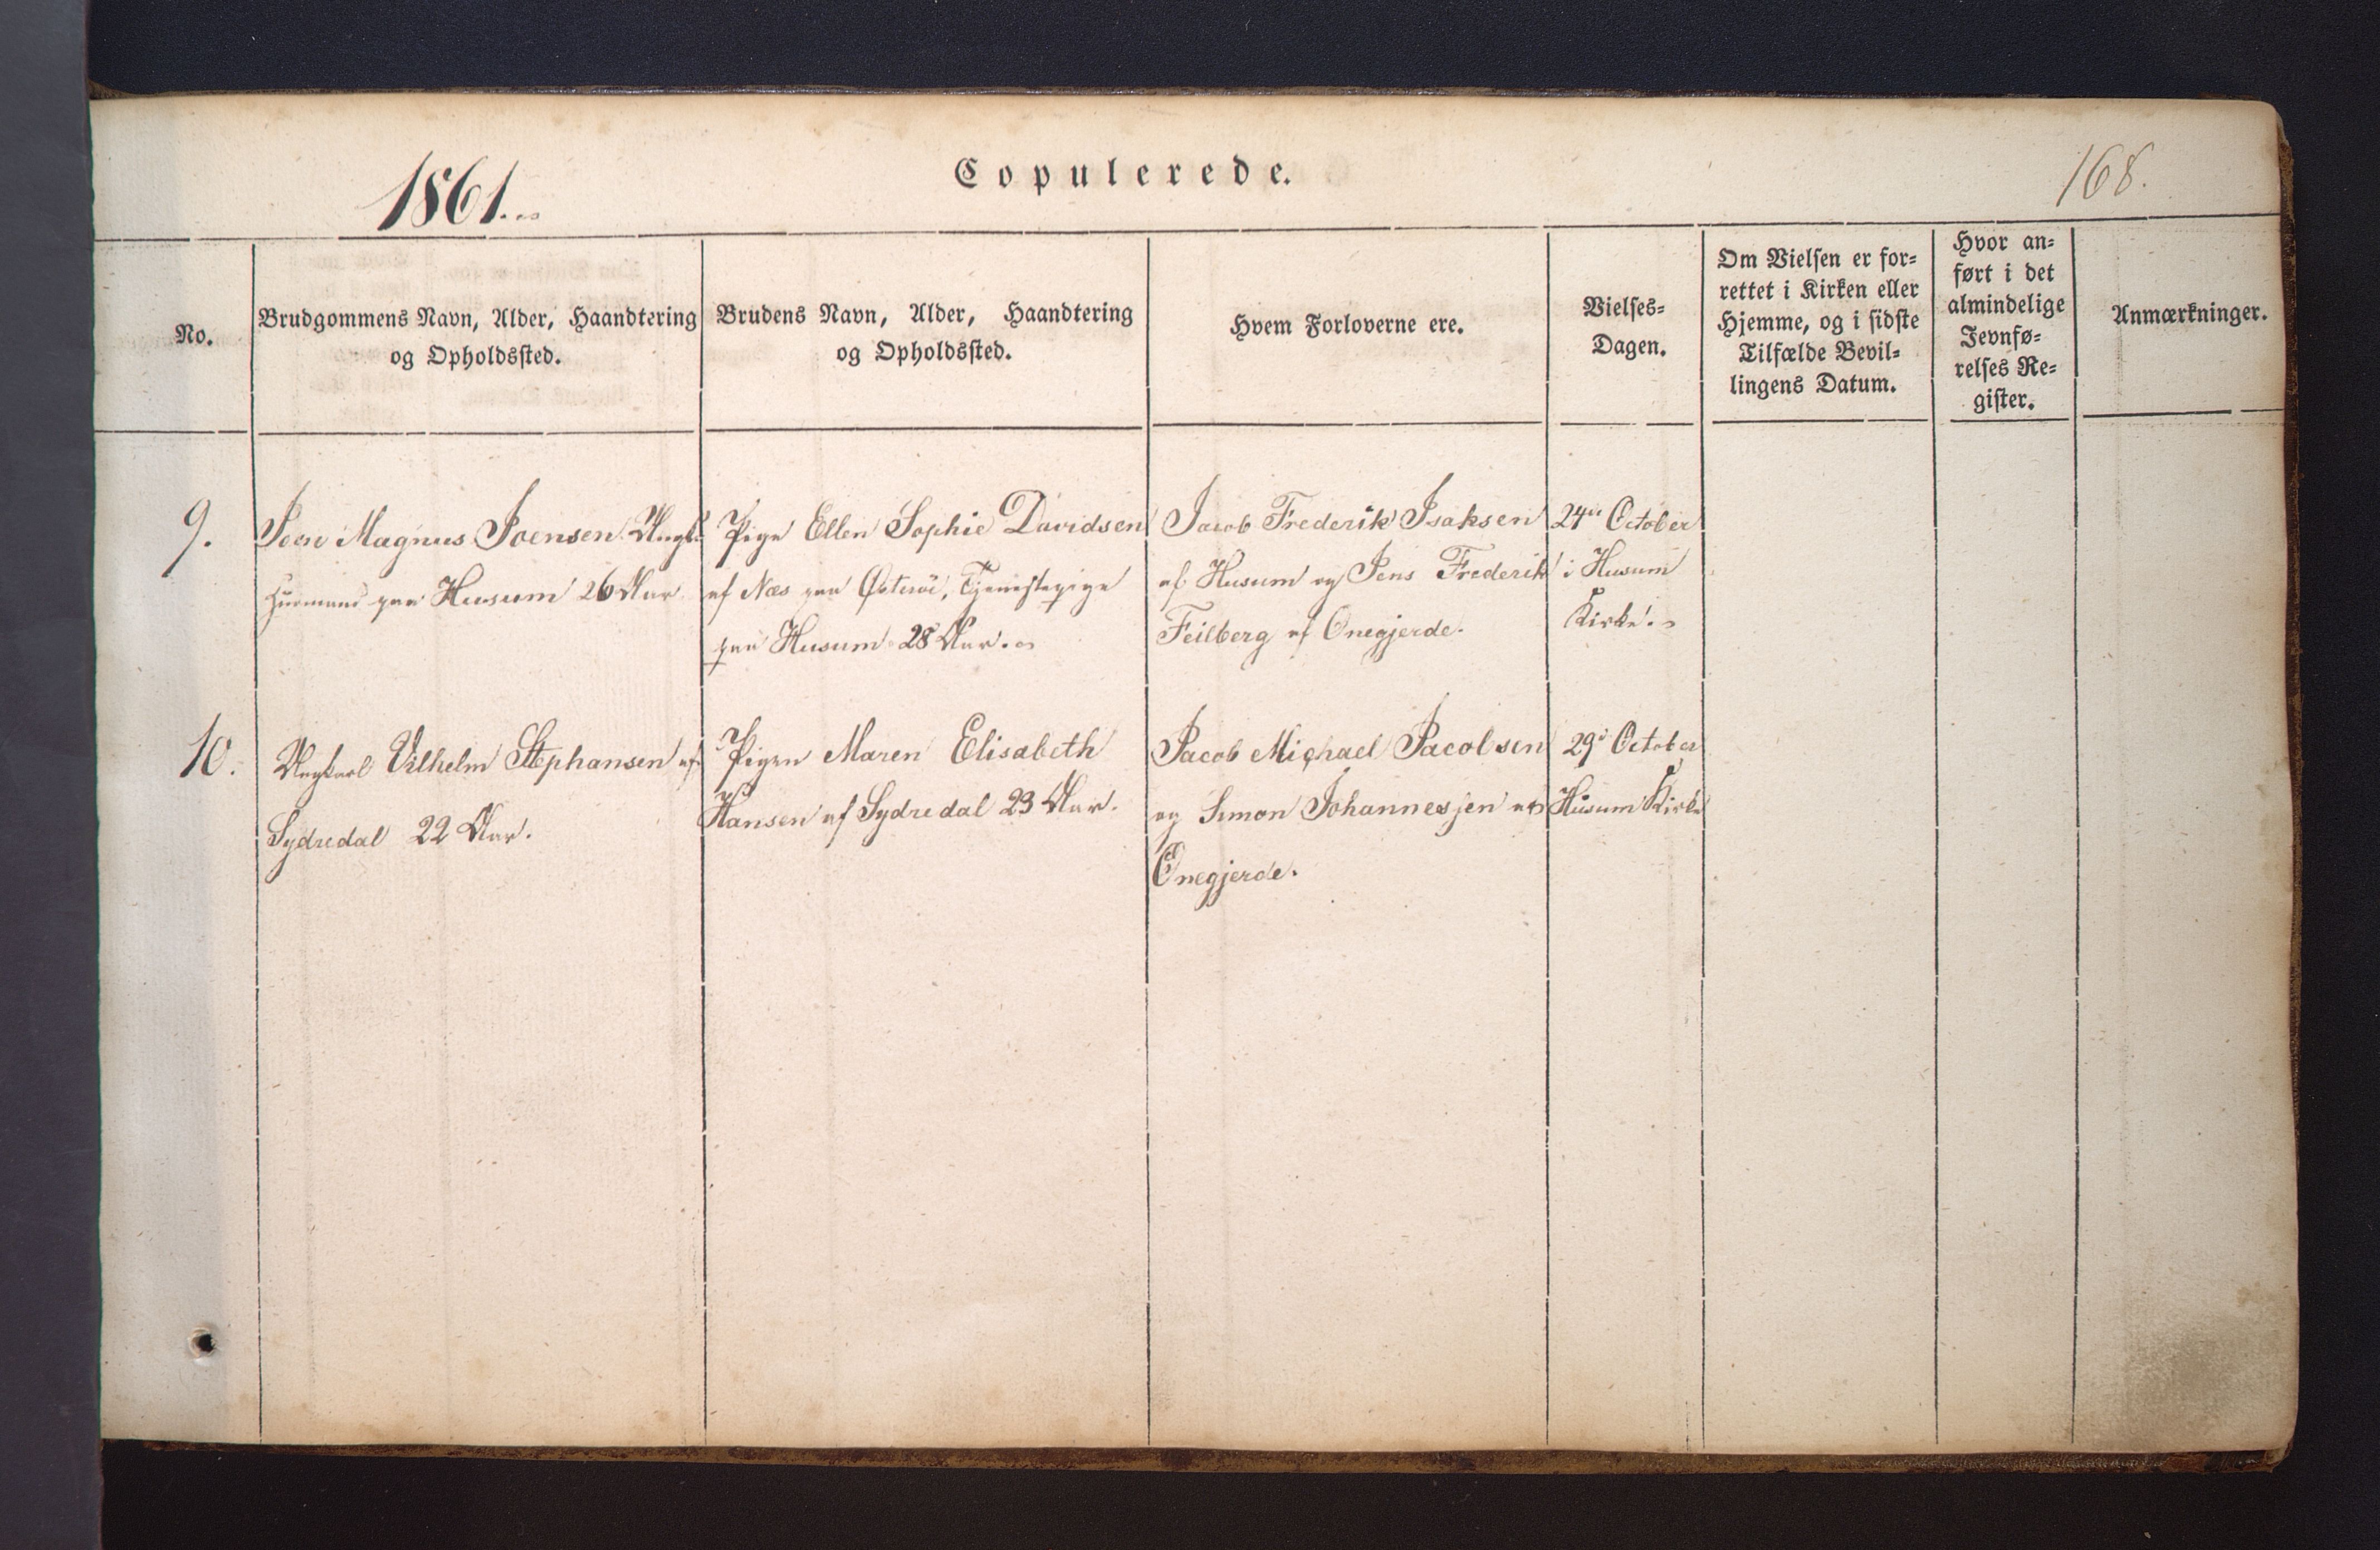 1861.
Copulerede.
168.
No.
Brudgommens Navn, Alder, Haandtering
og Opholdssted.
Brudens Navn, Alder, Haandtering
og Opholdssted.
Hvem Forloverne ere.
Vielses-
Dagen.
Om Vielsen er for-
rettet i Kirken eller
Hjemme, og i sidste
Tilfælde Bevil-
lingens Datum.
Hvor an-
ført i det
almindelige
Jevnfø-
relses Re-
gister.
Anmærkninger.
9.
Joen Magnus Joensen Ungk.
Huusmand paa Husum 26 Aar
Pige Ellen Sophie Davidsen
af Næs paa Østerøe, Tjenestepige
paa Husum 28 Aar.
Jacob Frederik Isaksen
af Husum og Jens Frederik
Feilberg af Onegjerde.
24de October
i Husum
Kirke.
10.
Ungkarl Vilhelm Stephansen af
Sydredal 22 Aar.
Pigen Maren Elisabeth
Hansen af Sydredal 23 Aar.
Jacob Michael Jacobsen
og Simon Johannesjen af
Onegjerde.
29d October
Husum Kirke